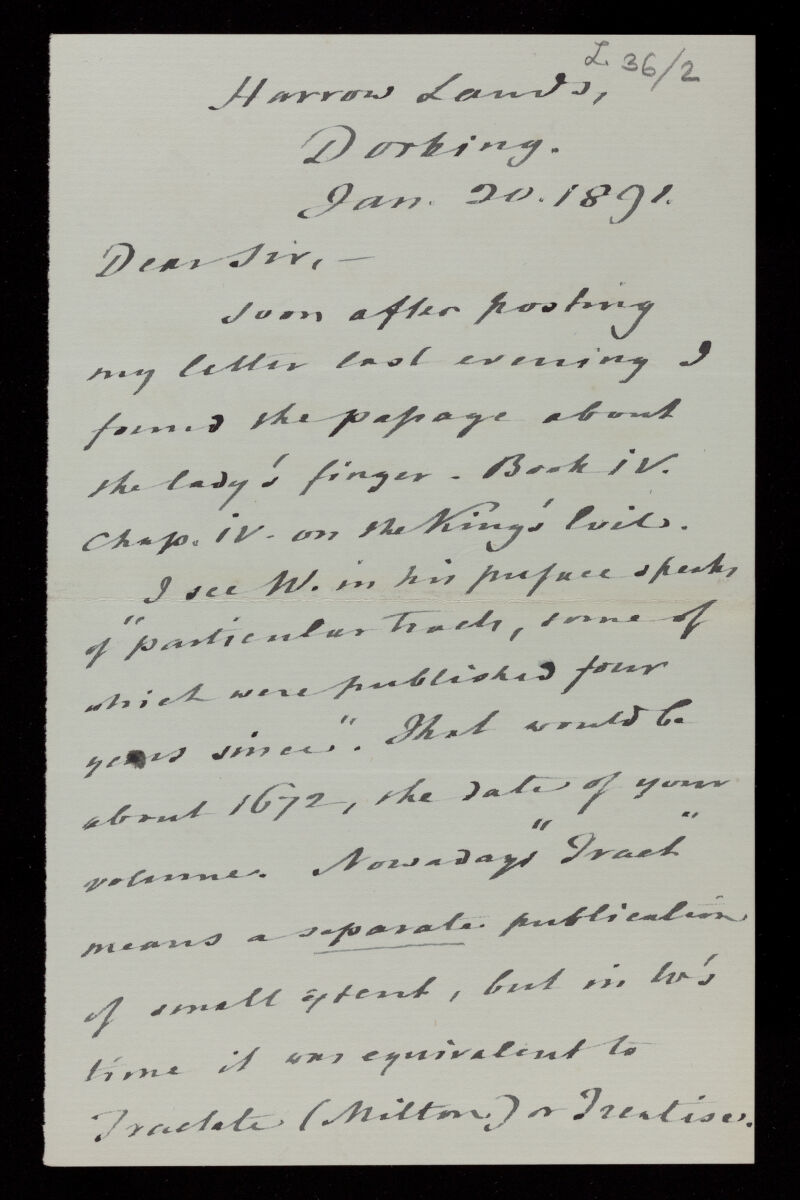 L 36/2
Harrow Lands,
Dorking.
Jan. 20. 1891.
Dear Sir, —
Soon after posting
my letter last evening I
found the passage about
the lady's finger - Book IV.
Chap. IV. on the King's Evil.
I see W. in his preface speaks
of "particular tracts, some of
which were published four
years since". That would be
about 1672, the date of your
volume. Nowadays "Tract"
means a separate publication
of small extent, but in W's
time it was equivalent to
Tractate (Milton) or Treatise.